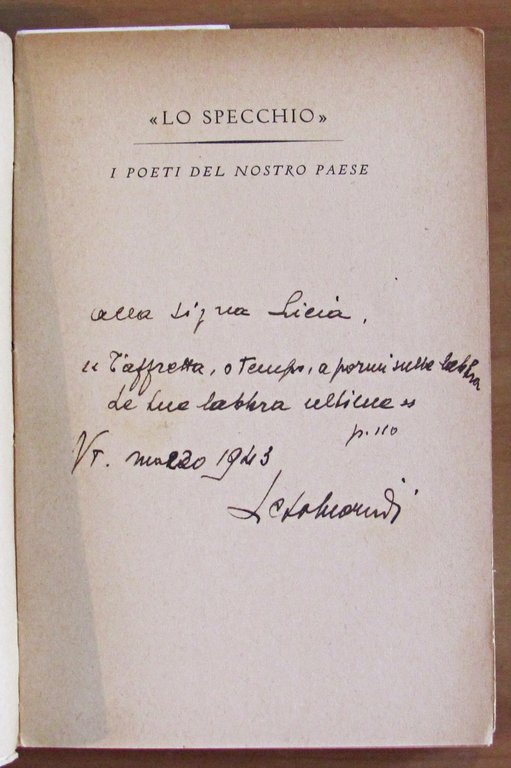 «LO SPECCHIO»
I POETI DEL NOSTRO PAESE
alla sig.ra Licia,
« T'affretta, o tempo, a pormi sulle labbra
le tue labbra ultime »
p. 110
VT. marzo 1943